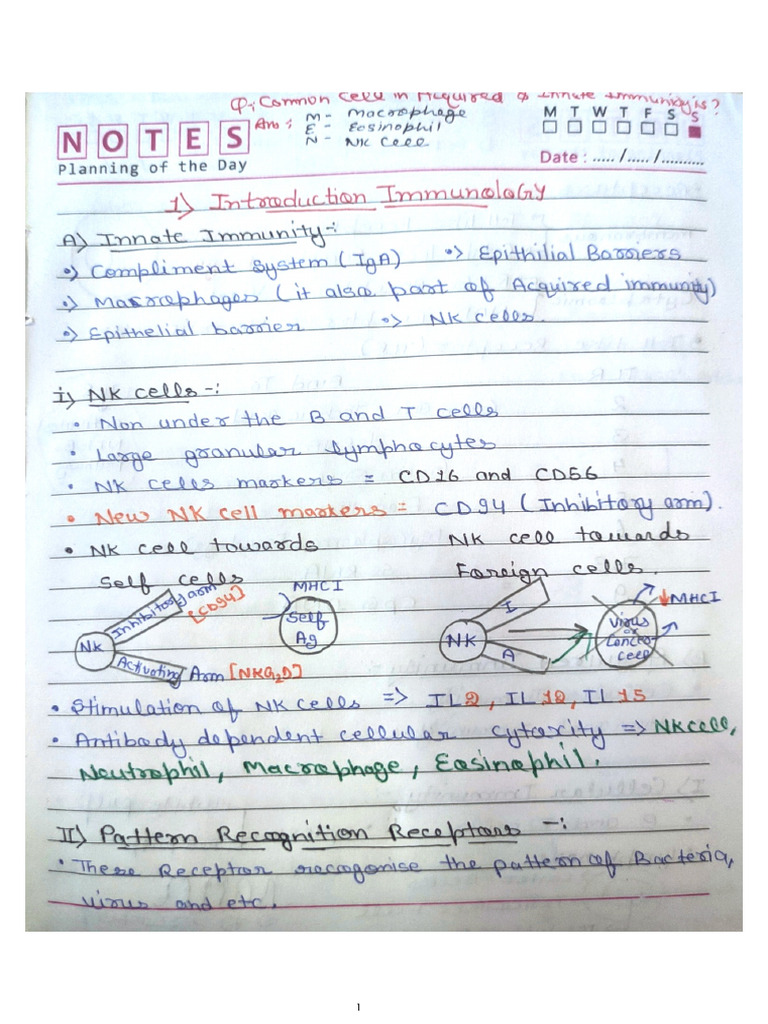 Q: Common Cell in Acquired & Innate Immunity is?
Ans: M - Macrophage
E - Eosinophil
N - NK Cell
NOTES
Planning of the Day
M T W T F S S
Date : ...../...../.........
1) Introduction Immunology
A) Innate Immunity -:
•> Compliment System (IgA) •> Epithilial Barriers
•> Macrophages (it also part of Acquired immunity)
•> Epithelial barrier •> NK cells.
i) NK cells -:
• Non under the B and T cells
• Large granular lymphocytes
• NK cells markers = CD16 and CD56
• New NK cell markers = CD94 (Inhibitory arm).
• NK cell towards Self cells
NK cell towards Foreign cells.
NK
Inhibitory arm [CD94]
Activating Arm [NKG2D]
MHC I
Self Ag
NK
I
A
Virus or Cancer Cell
↓MHC I
• Stimulation of NK cells => IL2, IL12, IL15
• Antibody dependent cellular cytoxity => NK cell,
Neutrophil, Macrophage, Eosinophil.
II) Pattern Recognition Receptors -:
• These Receptor recogonise the pattern of Bacteria,
virus and etc.
1